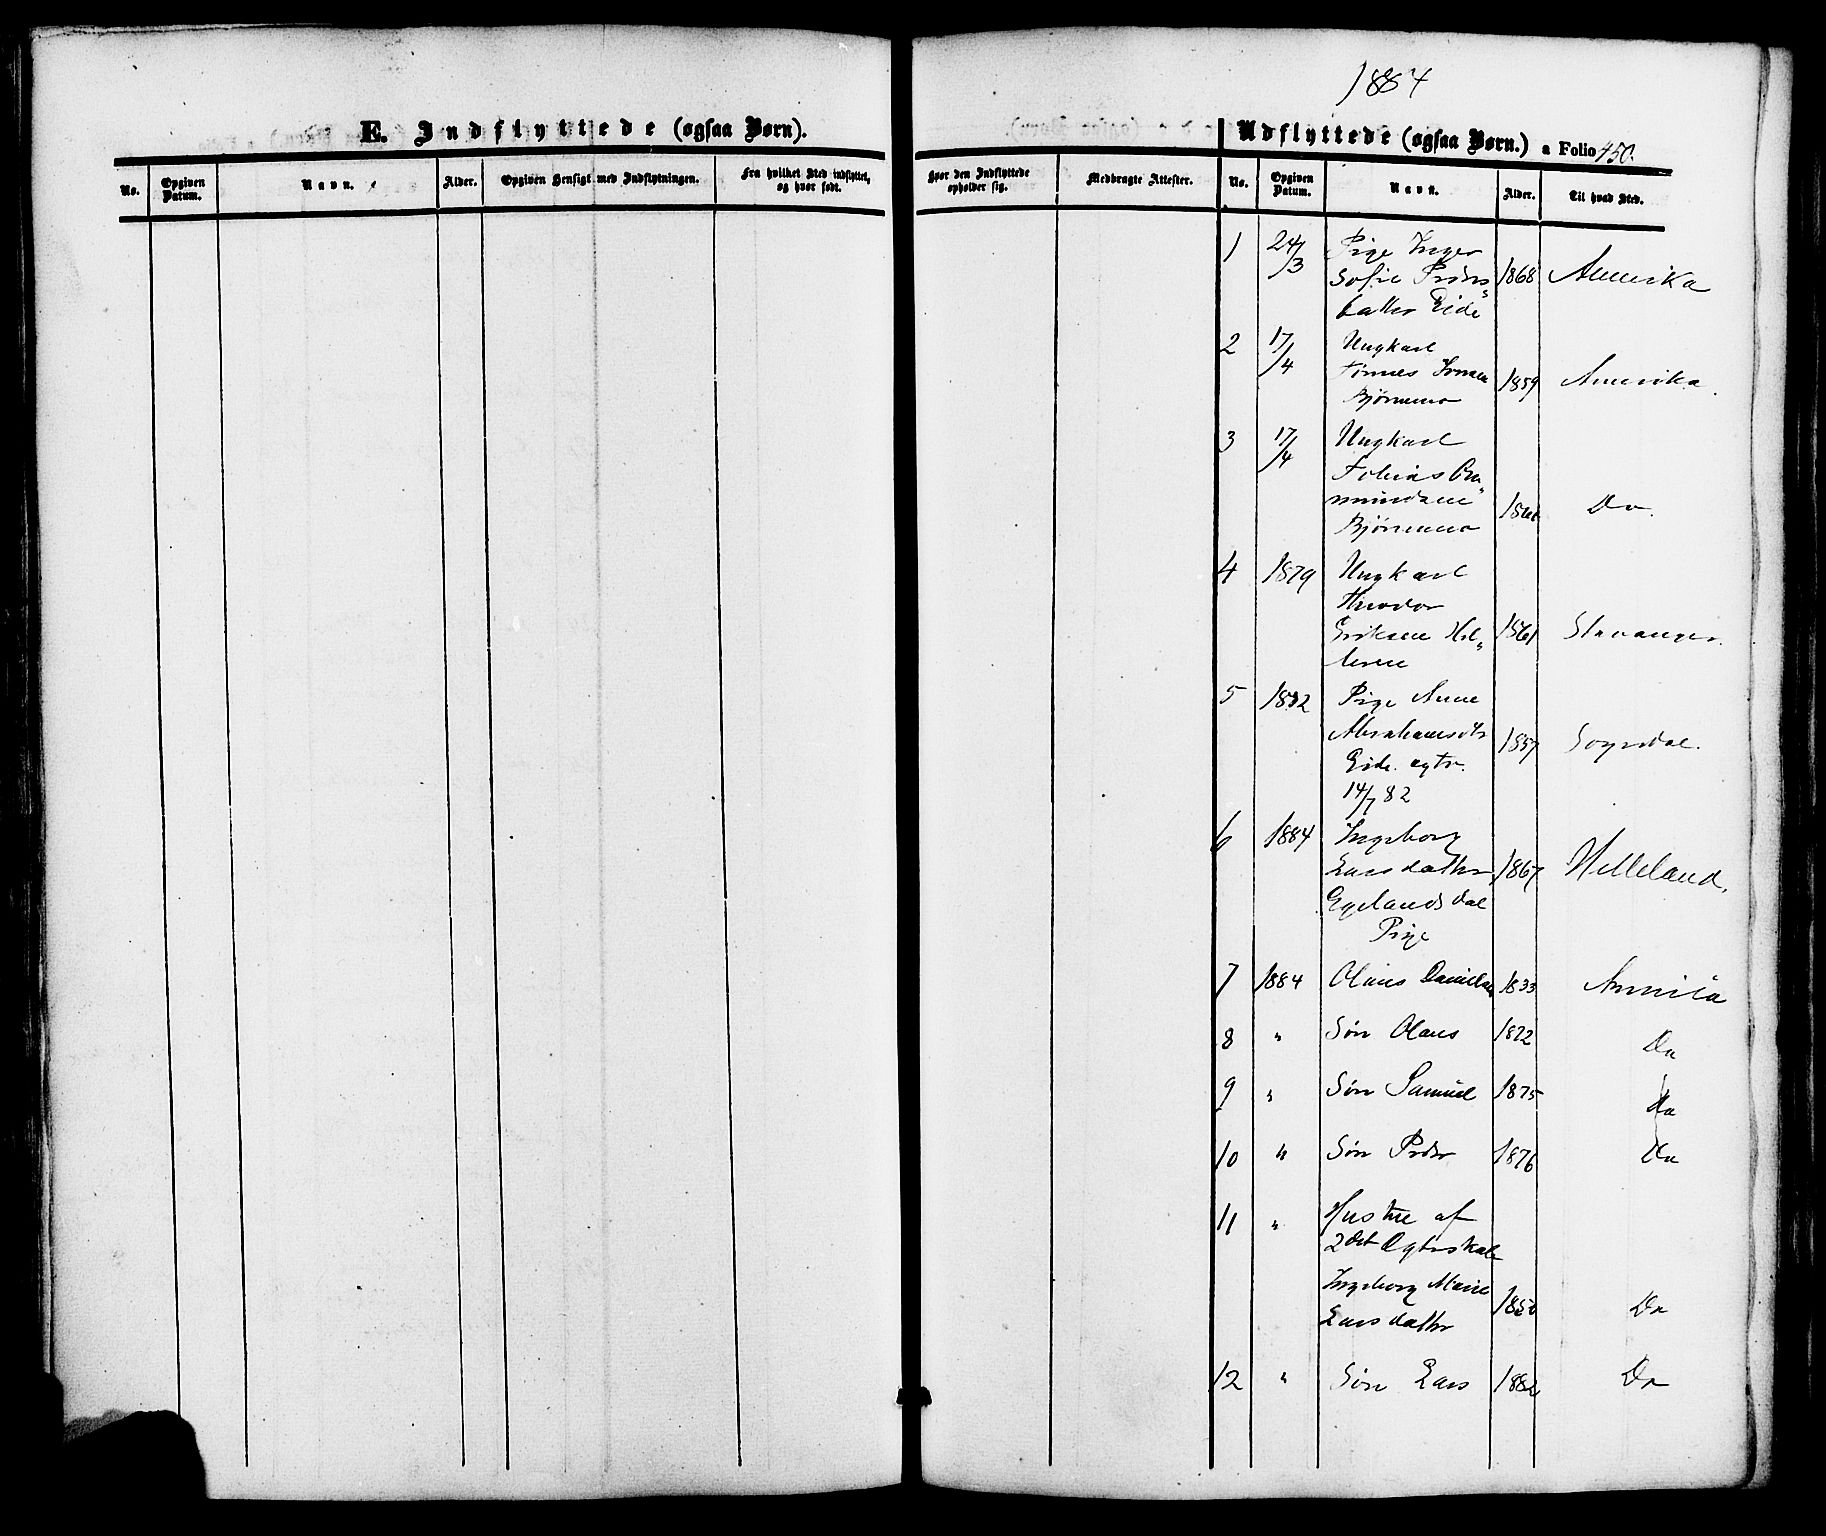 1884
E. Indflyttede (ogsaa Børn).
Udflyttede (ogsaa Børn.) a Folio 450.
No. Opgiven Datum. Navn. Alder. Opgiven Hensigt med Indflytningen. Fra hvilket Sted indflyttet, og hvor født. Hvor den Indflyttede opholder sig. Medbragte Attester. No. Opgiven Datum. Navn. Alder. Til hvad Sted.
1 24/3 Pige Inger
Sofie Peders„ 1868 Amerika
datter Eide
2 17/4 Ungkarl
Tønnes 1859 Amerika.
Bjørnemo
3 17/4 Ungkarl
Tobias Om„
mundsen Do.
Bjørnemo
4 1879 Ungkarl
Theodor
Eriksen Hel„ 1861 Stavanger.
leren
5 1882 Pige Anne
Abrahamsdtr 1857 Sogndal.
Eide. egtv.
14/7 82
6 1884 Ingeborg
Larsdatter 1867 Helleland.
Egelandsdal
Pige
7 1884 Olaus Danielsen 1833 Amerika
8 " Søn Olaus 1872 Do
9 " Søn Samuel 1875 Do
10 " Søn Peder 1876 Do
11 " Hustru af
2det Egteskab
Ingeborg Marie
Larsdatter Do
12 " Søn Lars 1882 Do